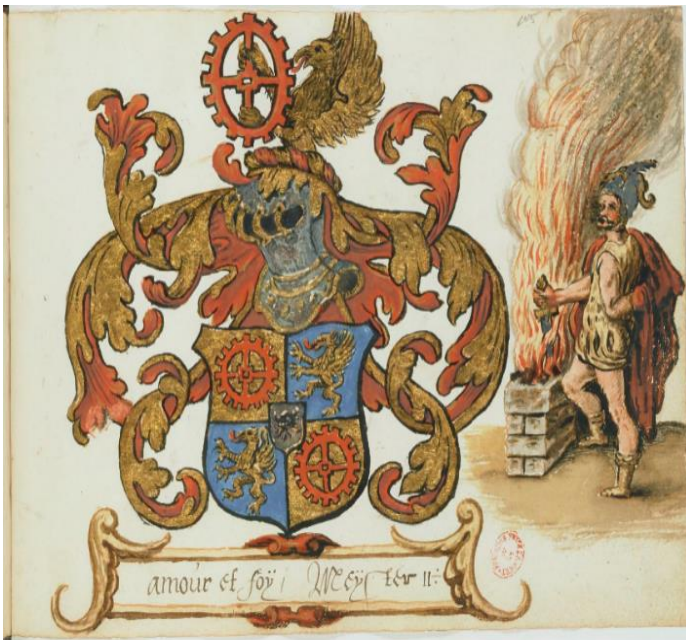 amour et foÿ Meyster II: